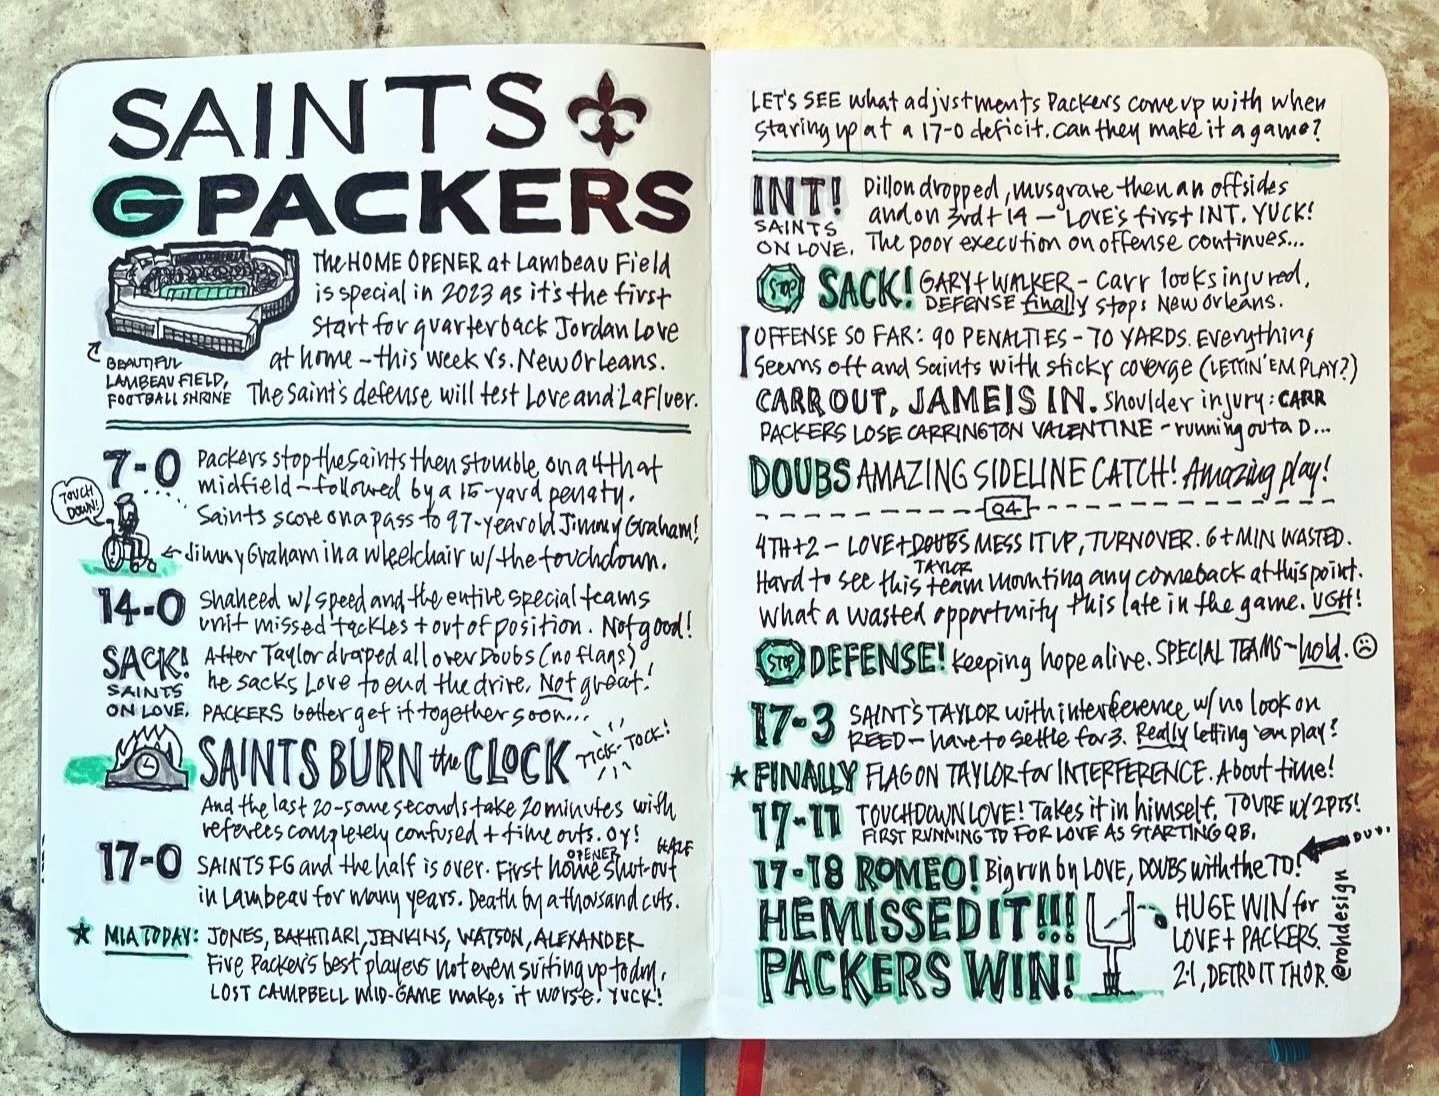 SAINTS
G PACKERS
The HOME OPENER at Lambeau Field
is special in 2023 as it's the first
start for quarterback Jordan Love
at home – this week vs. New Orleans.
The Saint's defense will test Love and LaFluer.
BEAUTIFUL
LAMBEAU FIELD,
FOOTBALL SHRINE
7-0 Packers stop the Saints then stumble on a 4th at
midfield – followed by a 15-yard penalty.
Saints score on a pass to 97-year old Jimmy Graham!
TOUCH
DOWN!
Jimmy Graham in a wheelchair w/ the touchdown.
14-0 Shaheed w/ speed and the entire special teams
unit missed tackles + out of position. Not good!
SACK! After Taylor draped all over Doubs (no flags)
SAINTS he sacks Love to end the drive. Not great!
ON LOVE. PACKERS better get it together soon...
SAINTS BURN the CLOCK TICK-TOCK!
And the last 20-some seconds take 20 minutes with
referees completely confused + time outs. OY!
17-0 SAINTS FG and the half is over. First home OPENER shut-out HALF
in Lambeau for many years. Death by a thousand cuts.
MIA TODAY: JONES, BAKHTIARI, JENKINS, WATSON, ALEXANDER
Five Packer's best players not even suiting up today.
LOST CAMPBELL MID-GAME makes it worse. YUCK!
LET'S SEE what adjustments Packers come up with when
staring up at a 17-0 deficit. Can they make it a game?
INT! Dillon dropped, Musgrave then an offsides
SAINTS and on 3rd + 14 – LOVE's first INT. YUCK!
ON LOVE. The poor execution on offense continues...
STOP SACK! GARY + WALKER – Carr looks injured,
DEFENSE finally stops New Orleans.
OFFENSE SO FAR: 90 PENALTIES – 70 YARDS. Everything
seems off and Saints with sticky coverge (LETTIN' EM PLAY?)
CARR OUT, JAMEIS IN. Shoulder injury: CARR
PACKERS LOSE CARRINGTON VALENTINE – running outa D...
DOUBS AMAZING SIDELINE CATCH! Amazing play!
Q4
4TH + 2 – LOVE + DOUBS TAYLOR MESS IT UP, TURNOVER. 6+ MIN WASTED.
Hard to see this team mounting any comeback at this point.
What a wasted opportunity this late in the game. UGH!
STOP DEFENSE! Keeping hope alive. SPECIAL TEAMS – hold.
17-3 SAINT'S TAYLOR with interference w/ no look on
REED – have to settle for 3. Really letting 'em play?
FINALLY FLAG ON TAYLOR for INTERFERENCE. About time!
17-11 TOUCHDOWN LOVE! Takes it in himself. TOURE w/ 2PTS!
FIRST RUNNING TD FOR LOVE AS STARTING QB.
17-18 ROMEO! Big run by LOVE, DOUBS with the TD!
HE MISSED IT!!!
PACKERS WIN!
HUGE WIN for
LOVE + PACKERS.
2-1, DETROIT THUR.
@rohdesign